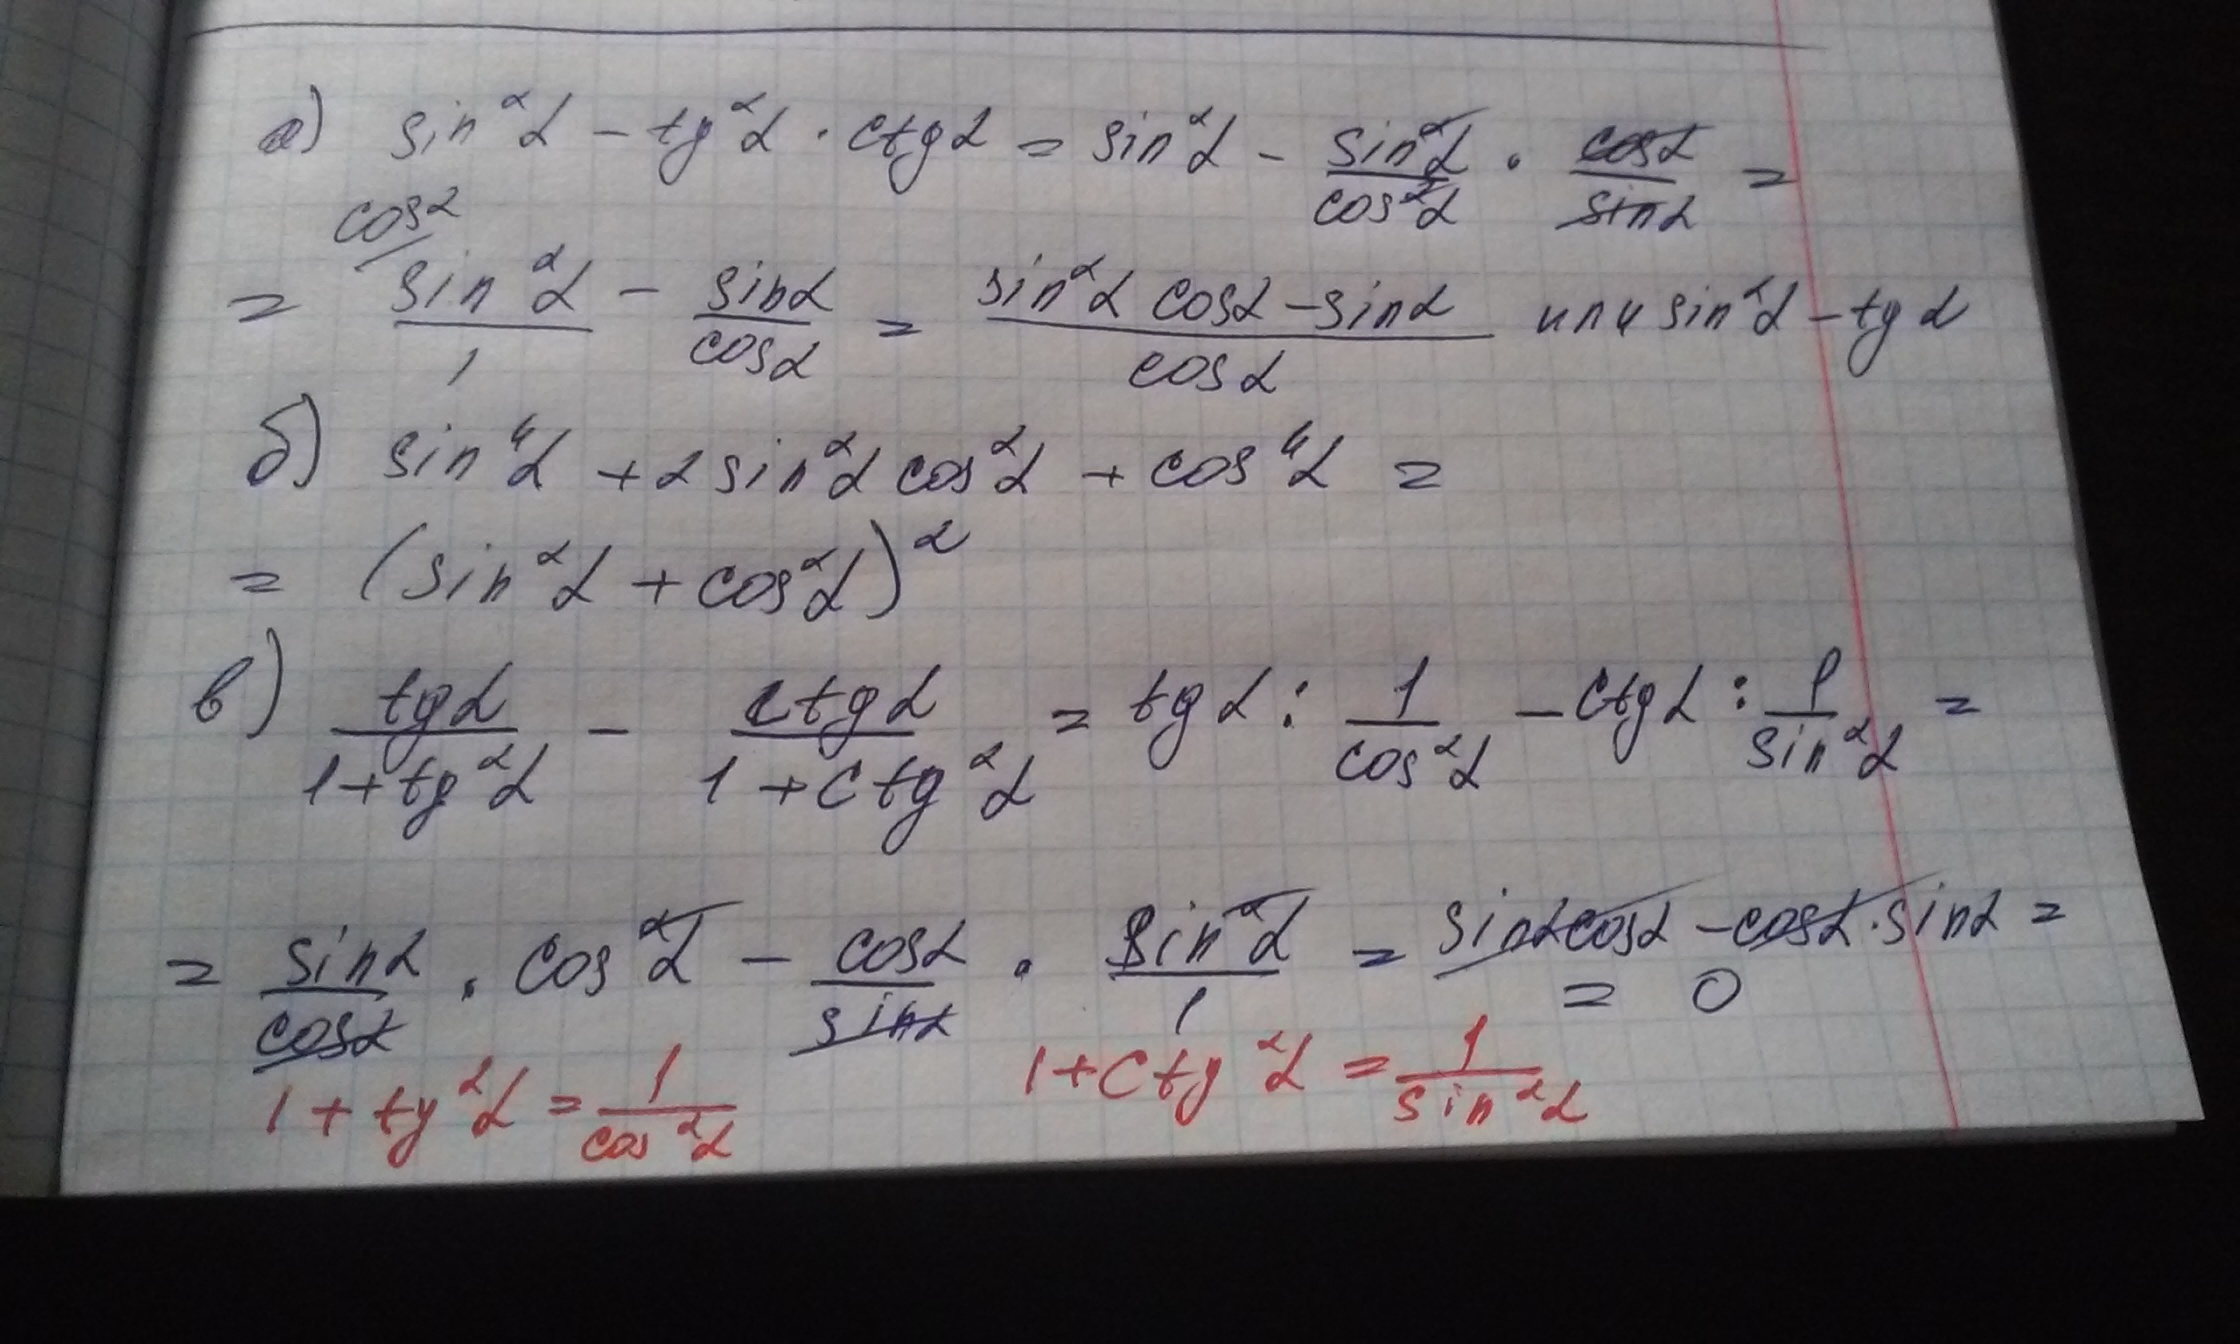 а) sin²α - tg²α · ctgα = sin²α - sin²α/cos²α · cosα/sinα =
cosα
= sin²α/1 - sinα/cosα = (sin²α cosα - sinα)/cosα или sin²α - tgα
б) sin⁴α + 2sin²α cos²α + cos⁴α =
= (sin²α + cos²α)²
в) tgα/(1+tg²α) - ctgα/(1+ctg²α) = tgα : 1/cos²α - ctgα : 1/sin²α =
= sinα/cosα · cos²α - cosα/sinα · sin²α/1 = sinαcosα - cosα·sinα =
= 0
1 + tg²α = 1/cos²α 1 + ctg²α = 1/sin²α